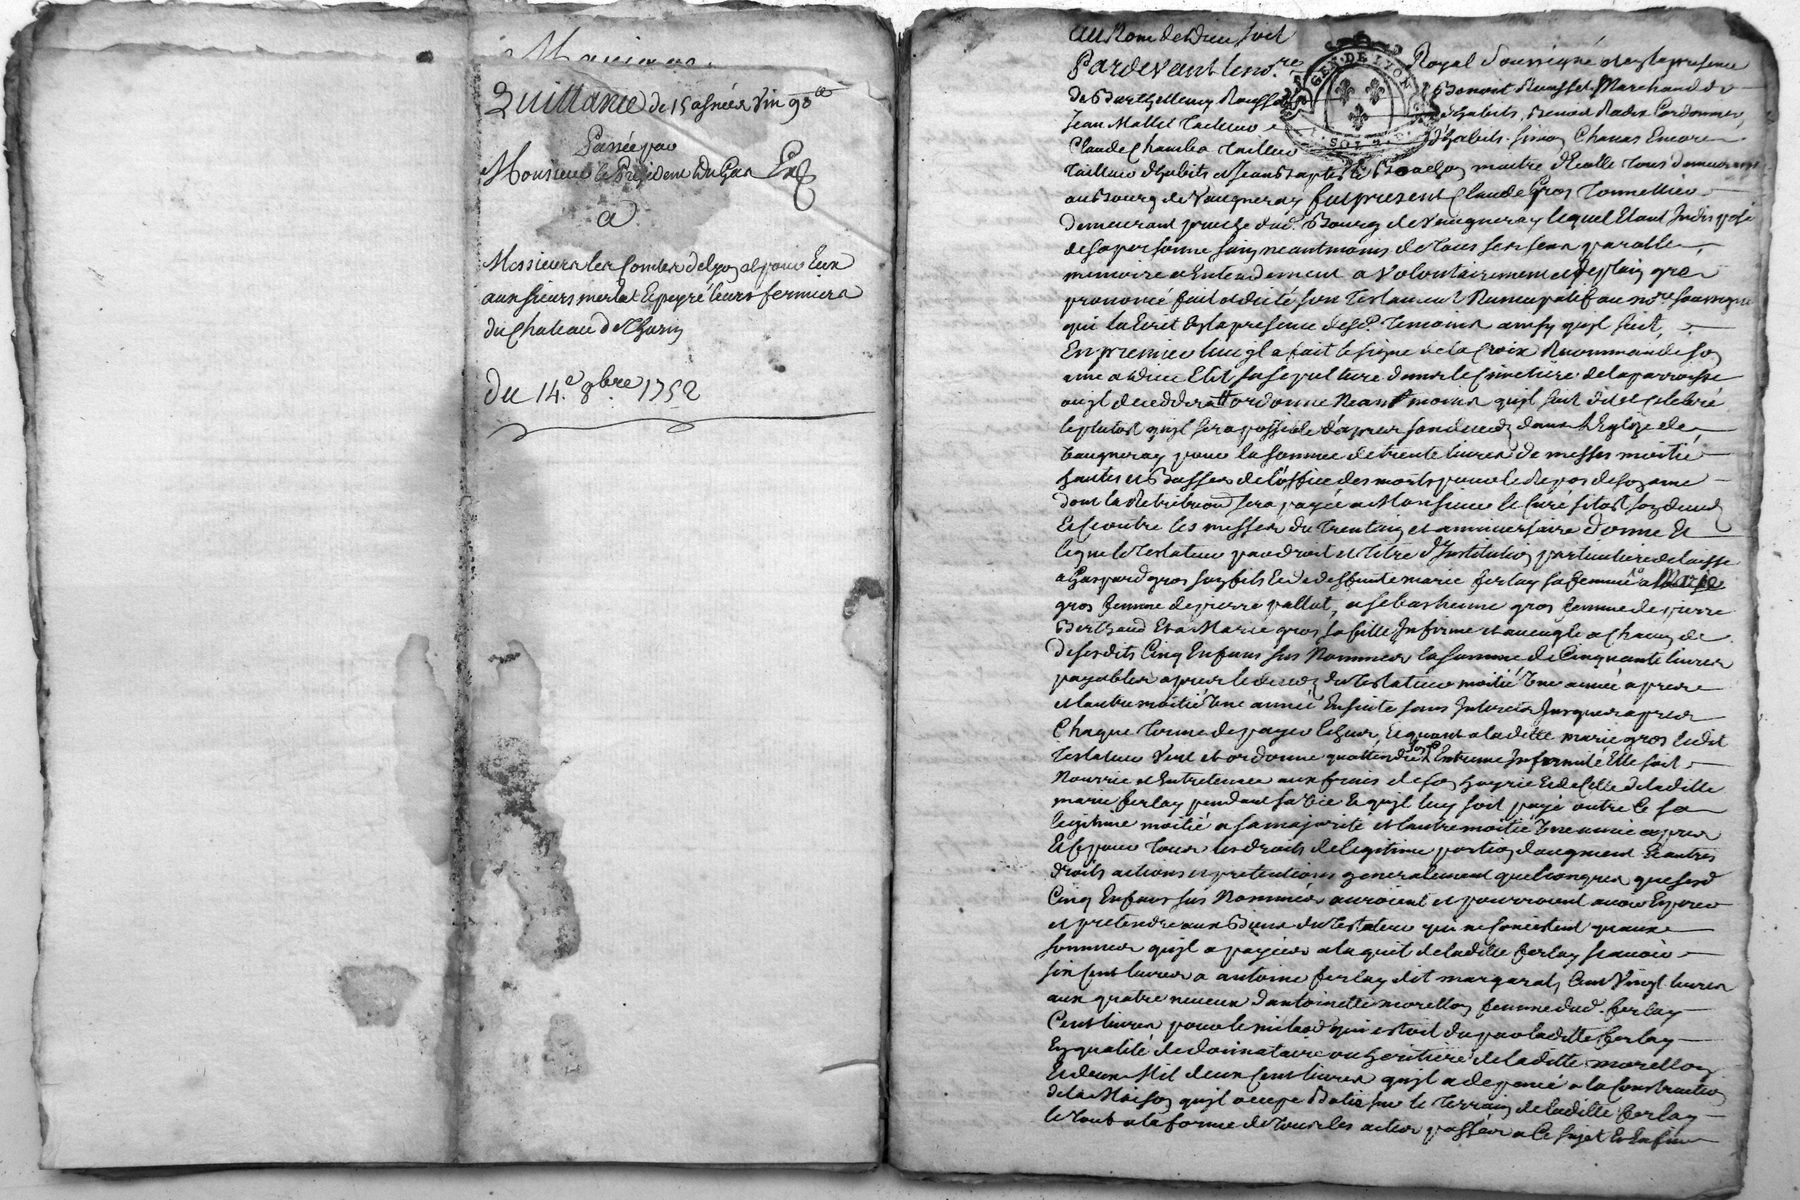 Quittance de 15 asnées vin 98ll
Passée par
Monsieur le President Dugas
a
Messieurs les Comtes de Lyon et pour Eux
aux sieurs merlat Epeyré leurs fermiers
du Chateau de Thurin
Du 14.e 8bre 1752
Au Nom de Dieu soit
Pardevant le no.re Royal soussigné et en la presence
de Barthellemy Benoit Marchand
Jean Mallet Tailleur d'habits, Benoit Cordonnier,
Claude Tailleur d'habits Simon Encore
Tailleur d'habits et Jean Baptiste maitre d'Ecolle Tous demeurants
au Bourg de Vaugneray fut present Claude Gros Tonnellier
demeurant proche dud. Bourg de Vaugneray lequel Etant Indisposé
de sa personne sain neantmoins de tous ses sens parolle
memoire et Entendement a Volontairement et de plein gré
prononcé fait et dicté son Testament Nuncupatif au no.re soussigné
qui la Ecrit En la presence desd. Temoins ainsy qu'il suit,
En premier lieu il a fait le signe de la Croix Recommandé son
ame a Dieu Elit sa sepulture dans le Cimetiere de la parroisse
ou il decedera ordonne Neantmoins qu'il soit dit et Celebré
le plutost qu'il sera possible d'apres son deces dans l'Eglize de
Vaugneray pour la somme de trente livres de messes moitié
hautes et Basses de l'office des morts pour le Repos de son ame
dont la Retribution sera payée a Monsieur le Curé sitost son deces
Et outre les messes du Trentain et anniversaire donne Et
legue le Testateur par droit et Titre d'Institution particuliere delaisse
a Gaspard gros son fils Et de deffunte marie ferlay sa femme, a
gros femme de pierre pallut, a sebastienne gros femme de pierre
Berthaud Et a Marie gros sa fille Infirme et aveugle a Chacun de
desdits Cinq Enfans sus Nommes la somme de Cinquante livres
payables apres le deces du Testateur moitié Une année apres
et l'autre moitié Une année Ensuite sans Interets Jusques apres
Chaque Terme de payer Echeus, Et quant a laditte marie gros ledit
Testateur Veut et ordonne qu'attendu son Extreme Infirmité Elle soit
Nourrie et Entretenue aux frais de son hoyrie Et de Celle de laditte
marie ferlay pendant sa vie Et qu'il luy soit payé outre Ce sa
legitime moitié a sa majorité et l'autre moitié Une année apres
Et Ce pour Tous les droits de legitime portion d'augment Et autres
droits actions et pretentions generalement quelconques que sesd
Cinq Enfans sus Nommés auroient et pourroient avoir Esperer
et pretendre aux Biens du Testateur qui ne Consistent qu'aux
sommes qu'il a payées a l'aquit de laditte ferlay scavoir
six Cent livres a antoine ferlay dit margarat, Cent Vingt livres
aux quatre neveux d'antoinette morellon femme dud. ferlay
Cent livres pour le milaod qui estoit du par laditte ferlay
En qualité de donnataire ou heritiere de laditte morellon
Et deux Mil deux Cent livres qu'il a depencé a la Construction
de la Maison qu'il occupe Batie sur le Terrain de laditte ferlay
le Tout a la forme de Tous les actes passés a Ce sujet Et Enfin